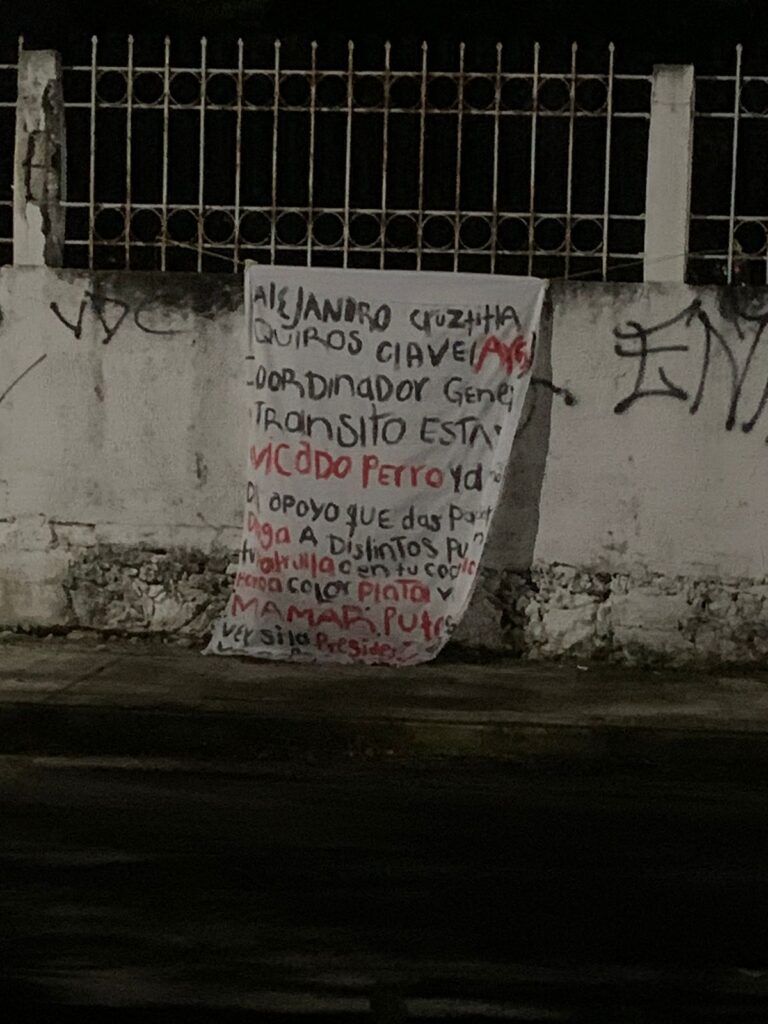 VDC
ALEJANDRO CruztitlA
QUIROS CLAVE(AYG)
COORDINADOR Gene
TRANSITO ESTA
VICADO PERRO yd
APOYO QUE das Pa
Droga A DISTINTOS PU
tu Patrulla o en tu coche
color PLATA y
MAMAR PUtes
ver si la Presiden
EN